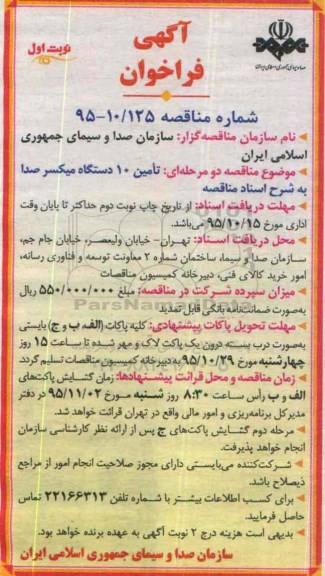 آگهی
فراخوان
نوبت اول
صدا و سیمای جمهوری اسلامی ایران
شماره مناقصه ۱۰/۱۲۵-۹۵
نام سازمان مناقصه‌گزار: سازمان صدا و سیمای جمهوری
اسلامی ایران
موضوع مناقصه دو مرحله‌ای: تأمین ۱۰ دستگاه میکسر صدا
به شرح اسناد مناقصه
مهلت دریافت اسناد: از تاریخ چاپ نوبت دوم حداکثر تا پایان وقت
اداری مورخ ۹۵/۱۰/۱۵ می‌باشد.
محل دریافت اسناد: تهران- خیابان ولیعصر، خیابان جام جم،
سازمان صدا و سیما، ساختمان شماره ۲ معاونت توسعه و فناوری رسانه،
امور خرید کالای فنی، دبیرخانه کمیسیون مناقصات
میزان سپرده شرکت در مناقصه: مبلغ ۵۵۰/۰۰۰/۰۰۰ ریال
به‌صورت ضمانت‌نامه بانکی قابل تمدید
ParsNamadData
مهلت تحویل پاکات پیشنهادی: کلیه پاکات (الف، ب و ج) بایستی
به‌صورت درب بسته درون یک پاکت لاک و مهر شده تا ساعت ۱۵ روز
چهارشنبه مورخ ۹۵/۱۰/۲۹ به دبیرخانه کمیسیون مناقصات تسلیم گردد.
زمان مناقصه و محل قرائت پیشنهادها: زمان گشایش پاکت‌های
الف و ب رأس ساعت ۸:۳۰ روز شنبه مورخ ۹۵/۱۱/۰۲ در دفتر
مدیرکل برنامه‌ریزی و امور مالی واقع در تهران قرائت خواهد شد.
مرحله دوم گشایش پاکت‌های ج پس از ارائه نظر کارشناسی سازمان
انجام خواهد پذیرفت.
شرکت‌کننده می‌بایستی دارای مجوز صلاحیت انجام امور از مراجع
ذیصلاح باشد.
برای کسب اطلاعات بیشتر با شماره تلفن ۲۲۱۶۶۳۱۳ تماس
حاصل فرمایید.
بدیهی است هزینه درج ۲ نوبت آگهی به عهده برنده خواهد بود.
سازمان صدا و سیمای جمهوری اسلامی ایران